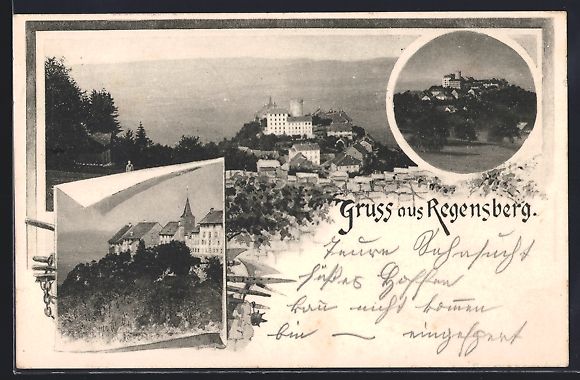 Gruss aus Regensberg.
Teure Sehnsucht
süßes Hoffen
kan nicht kommen
bin — eingesperrt